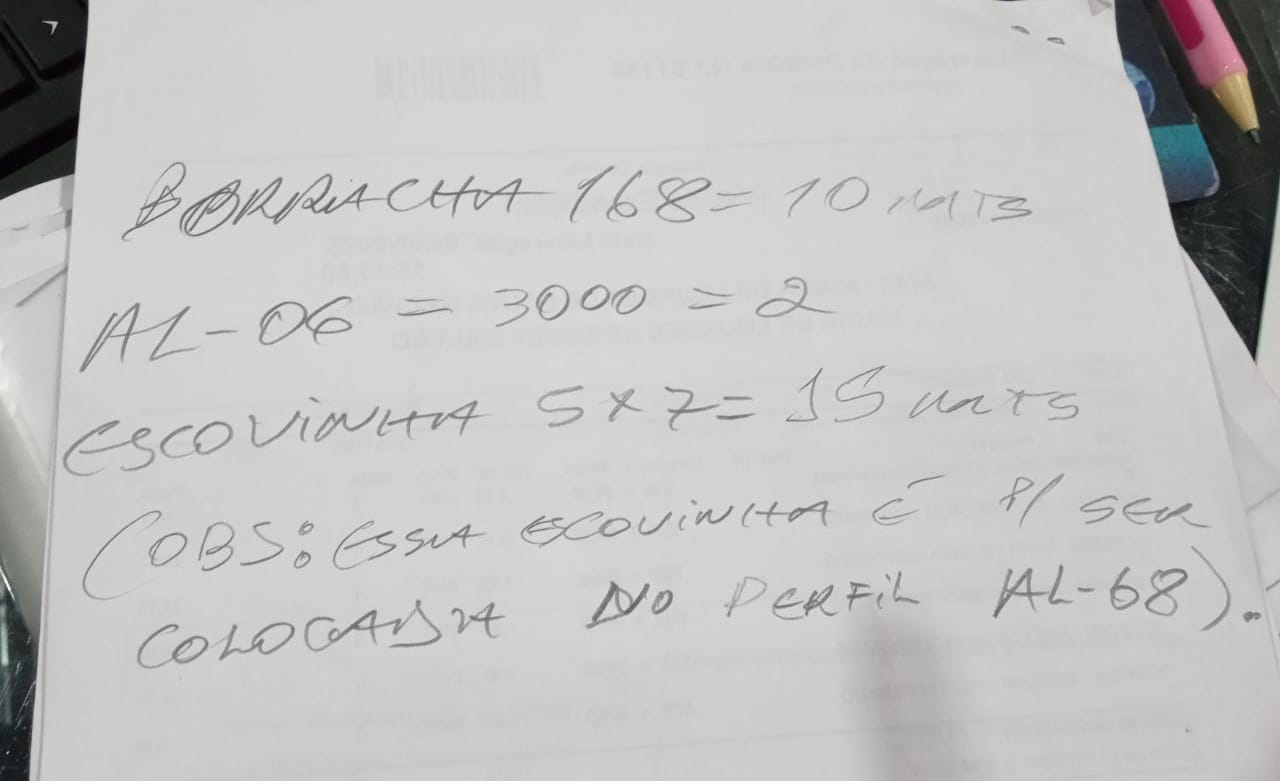 BORRACHA 168 = 10 mts
AL-06 = 3000 = 2
ESCOVINHA 5x7 = 15 mts
(OBS: ESSA ESCOVINHA É P/ SER
COLOCADA NO PERFIL AL-68)..